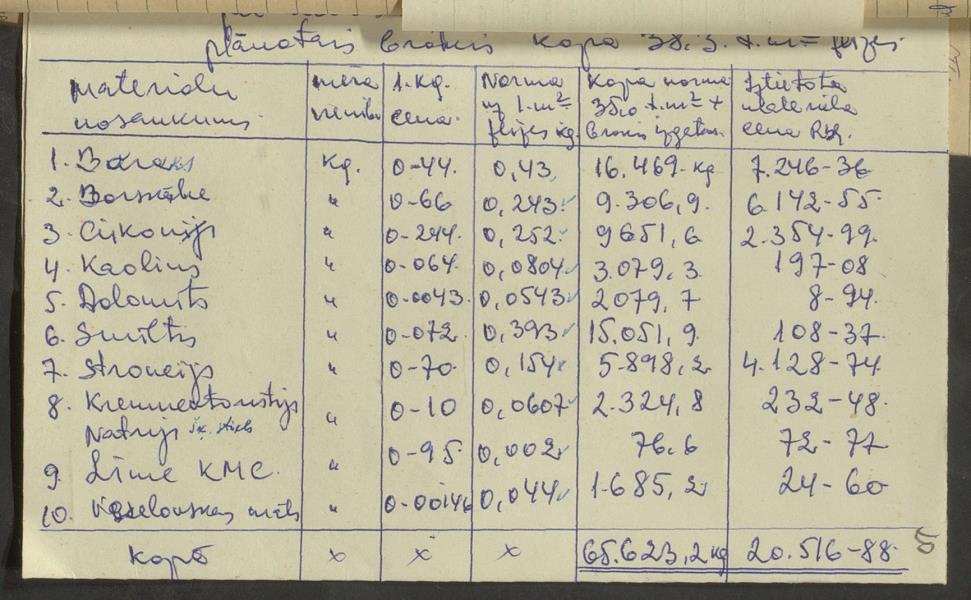 plānotais brāķis kopā 38.3. t.m² flīzes
materiālu nosaukums. mēra vienība 1.kg. cena. Norma uz 1.m² flīzes kg. Kopā norma 35,0 t.m² + brāķis izgatav. Iztietota materiāla cena Rbļ.
1. Boraks kg. 0-44. 0,43, 16.469. kg 7.246-36
2. Borskābe " 0-66 0,243. 9.306,9. 6.142-55.
3. Cirkonijs " 0-244. 0,252. 9651,6 2.354-99.
4. Kaolins " 0-064. 0,0804 3.079,3. 197-08
5. Dolomīts " 0-0043. 0,0543 2079,7 8-94.
6. Smiltis " 0-072. 0,393 15.051,9. 108-37.
7. Stroncijs " 0-70. 0,154 5.898,2. 4.128-74.
8. " 0-10 0,0607 2.324,8 232-48.
Natrijs šķ. stikls
9. Līme KMC. " 0-95. 0,002 76.6 72-77
10. māls " 0-00146 0,044 1.685,2 24-60
Kopā x x x 65.623,2 kg 20.516-88.
5